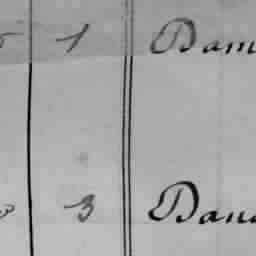 1 Dam
3 Dan